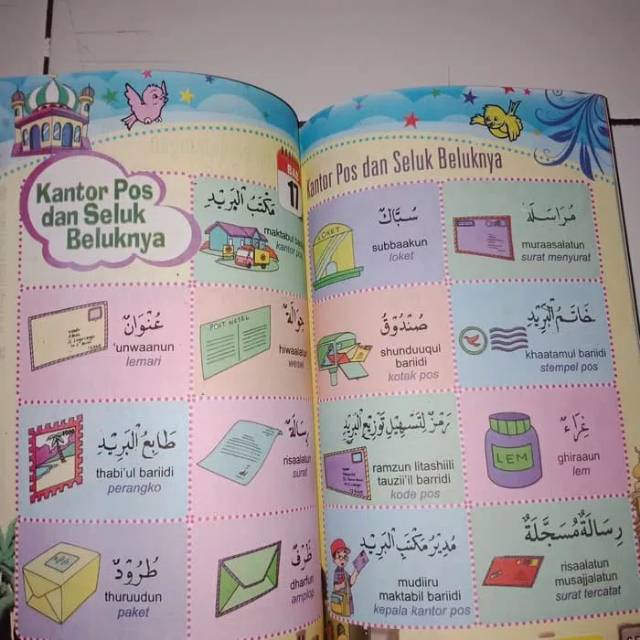 Kantor Pos
dan Seluk
Beluknya
BAB
17
مَكْتَبُ الْبَرِيْدِ
maktabul bariidi
kantor pos
عُنْوَانٌ
'unwaanun
lemari
حِوَالَةٌ
POST WESEL
hiwaalatun
wesel
طَابِعُ الْبَرِيْدِ
thabi'ul bariidi
perangko
رِسَالَةٌ
risaalatun
surat
طُرُوْدٌ
thuruudun
paket
ظَرْفٌ
dharfun
amplop
Kantor Pos dan Seluk Beluknya
LOKET
سُبَّاكٌ
subbaakun
loket
مُرَاسَلَةٌ
muraasalatun
surat menyurat
صُنْدُوْقُ
shunduuqui
bariidi
kotak pos
خَاتَمُ الْبَرِيْدِ
khaatamul bariidi
stempel pos
رَمْزٌ لِتَسْهِيْلِ تَوْزِيْعِ الْبَرِيْدِ
ramzun litashiili
tauzii'il barridi
kode pos
غِرَاءٌ
LEM
ghiraaun
lem
مُدِيْرُ مَكْتَبِ الْبَرِيْدِ
mudiiru
maktabil bariidi
kepala kantor pos
رِسَالَةٌ مُسَجَّلَةٌ
risaalatun
musajjalatun
surat tercatat